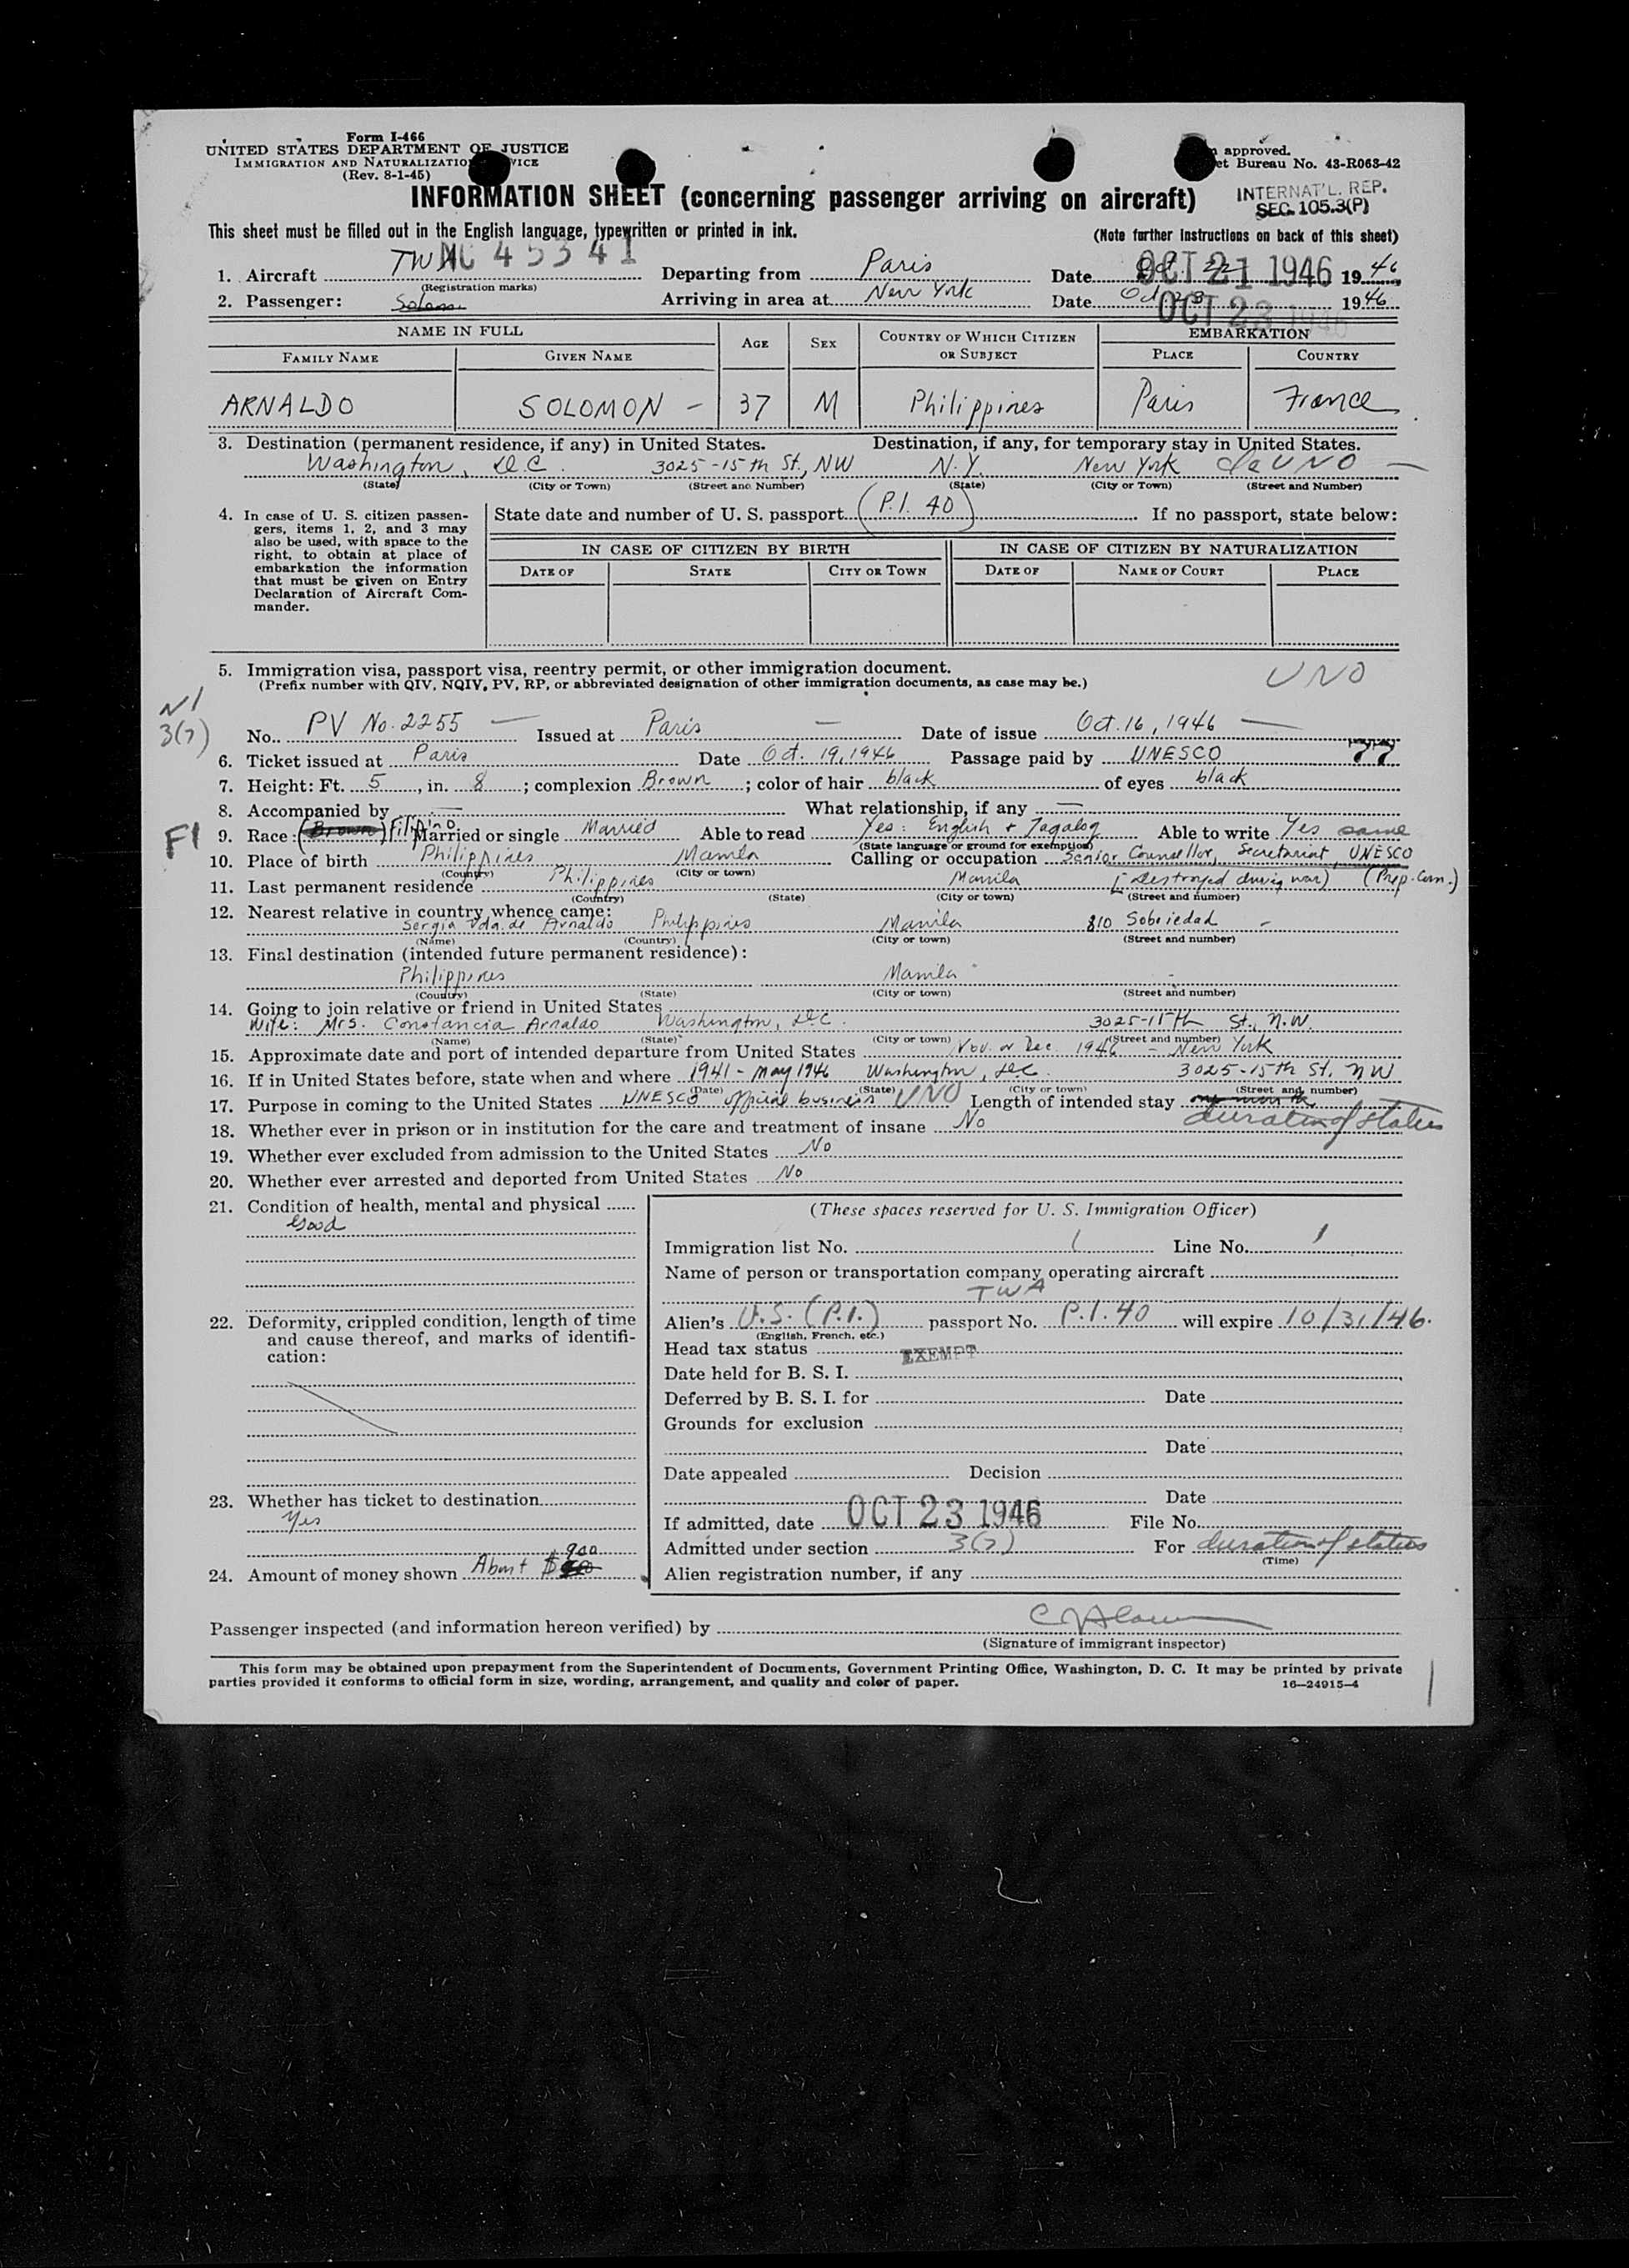 Form I-466
UNITED STATES DEPARTMENT OF JUSTICE
IMMIGRATION AND NATURALIZATIO VICE
(Rev. 8-1-45)
approved.
et Bureau No. 43-R063-42
INFORMATION SHEET (concerning passenger arriving on aircraft)
INTERNAT'L. REP.
SEC. 105.3(P)
This sheet must be filled out in the English language, typewritten or printed in ink.
(Note further instructions on back of this sheet)
1. Aircraft TWA NC 45341 Departing from Paris Date OCT 21 1946 1946
(Registration marks)
2. Passenger: Arriving in area at New York Date Oct. 23 OCT 23 1946 1946
NAME IN FULL AGE SEX COUNTRY OF WHICH CITIZEN OR SUBJECT EMBARKATION
FAMILY NAME GIVEN NAME PLACE COUNTRY
ARNALDO SOLOMON - 37 M Philippines Paris France
3. Destination (permanent residence, if any) in United States. Destination, if any, for temporary stay in United States.
Washington, D.C. 3025-15th St., NW N.Y. New York c/o UNO —
(State) (City or Town) (Street and Number) (State) (City or Town) (Street and Number)
4. In case of U. S. citizen passengers, items 1, 2, and 3 may also be used, with space to the right, to obtain at place of embarkation the information that must be given on Entry Declaration of Aircraft Commander.
State date and number of U. S. passport (P.I. 40) If no passport, state below:
IN CASE OF CITIZEN BY BIRTH IN CASE OF CITIZEN BY NATURALIZATION
DATE OF STATE CITY OR TOWN DATE OF NAME OF COURT PLACE
5. Immigration visa, passport visa, reentry permit, or other immigration document.
(Prefix number with QIV, NQIV, PV, RP, or abbreviated designation of other immigration documents, as case may be.)
UNO
NI
3(7)
No. PV No. 2255 — Issued at Paris — Date of issue Oct. 16, 1946 —
6. Ticket issued at Paris Date Oct. 19, 1946 Passage paid by UNESCO 77
7. Height: Ft. 5, in. 8; complexion Brown; color of hair black of eyes black
8. Accompanied by — What relationship, if any —
FI
9. Race: (Brown) Filipino Married or single Married Able to read Yes: English + Tagalog Able to write Yes same
(State language or ground for exemption)
10. Place of birth Philippines Manila Calling or occupation Senior Counsellor, Secretariat, UNESCO
(Country) (City or town)
(Prep. Com.)
11. Last permanent residence Philippines Manila (destroyed during war)
(Country) (State) (City or town) (Street and number)
12. Nearest relative in country whence came:
Sergia Vda. de Arnaldo Philippines Manila 810 Sobriedad -
(Name) (Country) (City or town) (Street and number)
13. Final destination (intended future permanent residence):
Philippines Manila -
(Country) (State) (City or town) (Street and number)
14. Going to join relative or friend in United States
Wife: Mrs. Constancia Arnaldo Washington, D.C. 3025-15th St., N.W.
(Name) (State) (City or town) (Street and number)
15. Approximate date and port of intended departure from United States Nov. or Dec. 1946 - New York
16. If in United States before, state when and where 1941 - May 1946 Washington, D.C. 3025-15th St. NW
(Date) (State) (City or town) (Street and number)
17. Purpose in coming to the United States UNESCO official business UNO Length of intended stay one month
duration of status
18. Whether ever in prison or in institution for the care and treatment of insane No
19. Whether ever excluded from admission to the United States No
20. Whether ever arrested and deported from United States No
21. Condition of health, mental and physical
Good
22. Deformity, crippled condition, length of time and cause thereof, and marks of identification:
23. Whether has ticket to destination
Yes
24. Amount of money shown About $ 900
(These spaces reserved for U. S. Immigration Officer)
Immigration list No. 1 Line No. 1
Name of person or transportation company operating aircraft
TWA
Alien's U.S. (P.I.) passport No. P.I. 40 will expire 10/31/46.
(English, French, etc.)
Head tax status EXEMPT
Date held for B. S. I.
Deferred by B. S. I. for Date
Grounds for exclusion
Date
Date appealed Decision
Date
If admitted, date OCT 23 1946 File No.
Admitted under section 3(7) For duration of status
(Time)
Alien registration number, if any
Passenger inspected (and information hereon verified) by
(Signature of immigrant inspector)
This form may be obtained upon prepayment from the Superintendent of Documents, Government Printing Office, Washington, D. C. It may be printed by private
parties provided it conforms to official form in size, wording, arrangement, and quality and color of paper.
16—24915-4